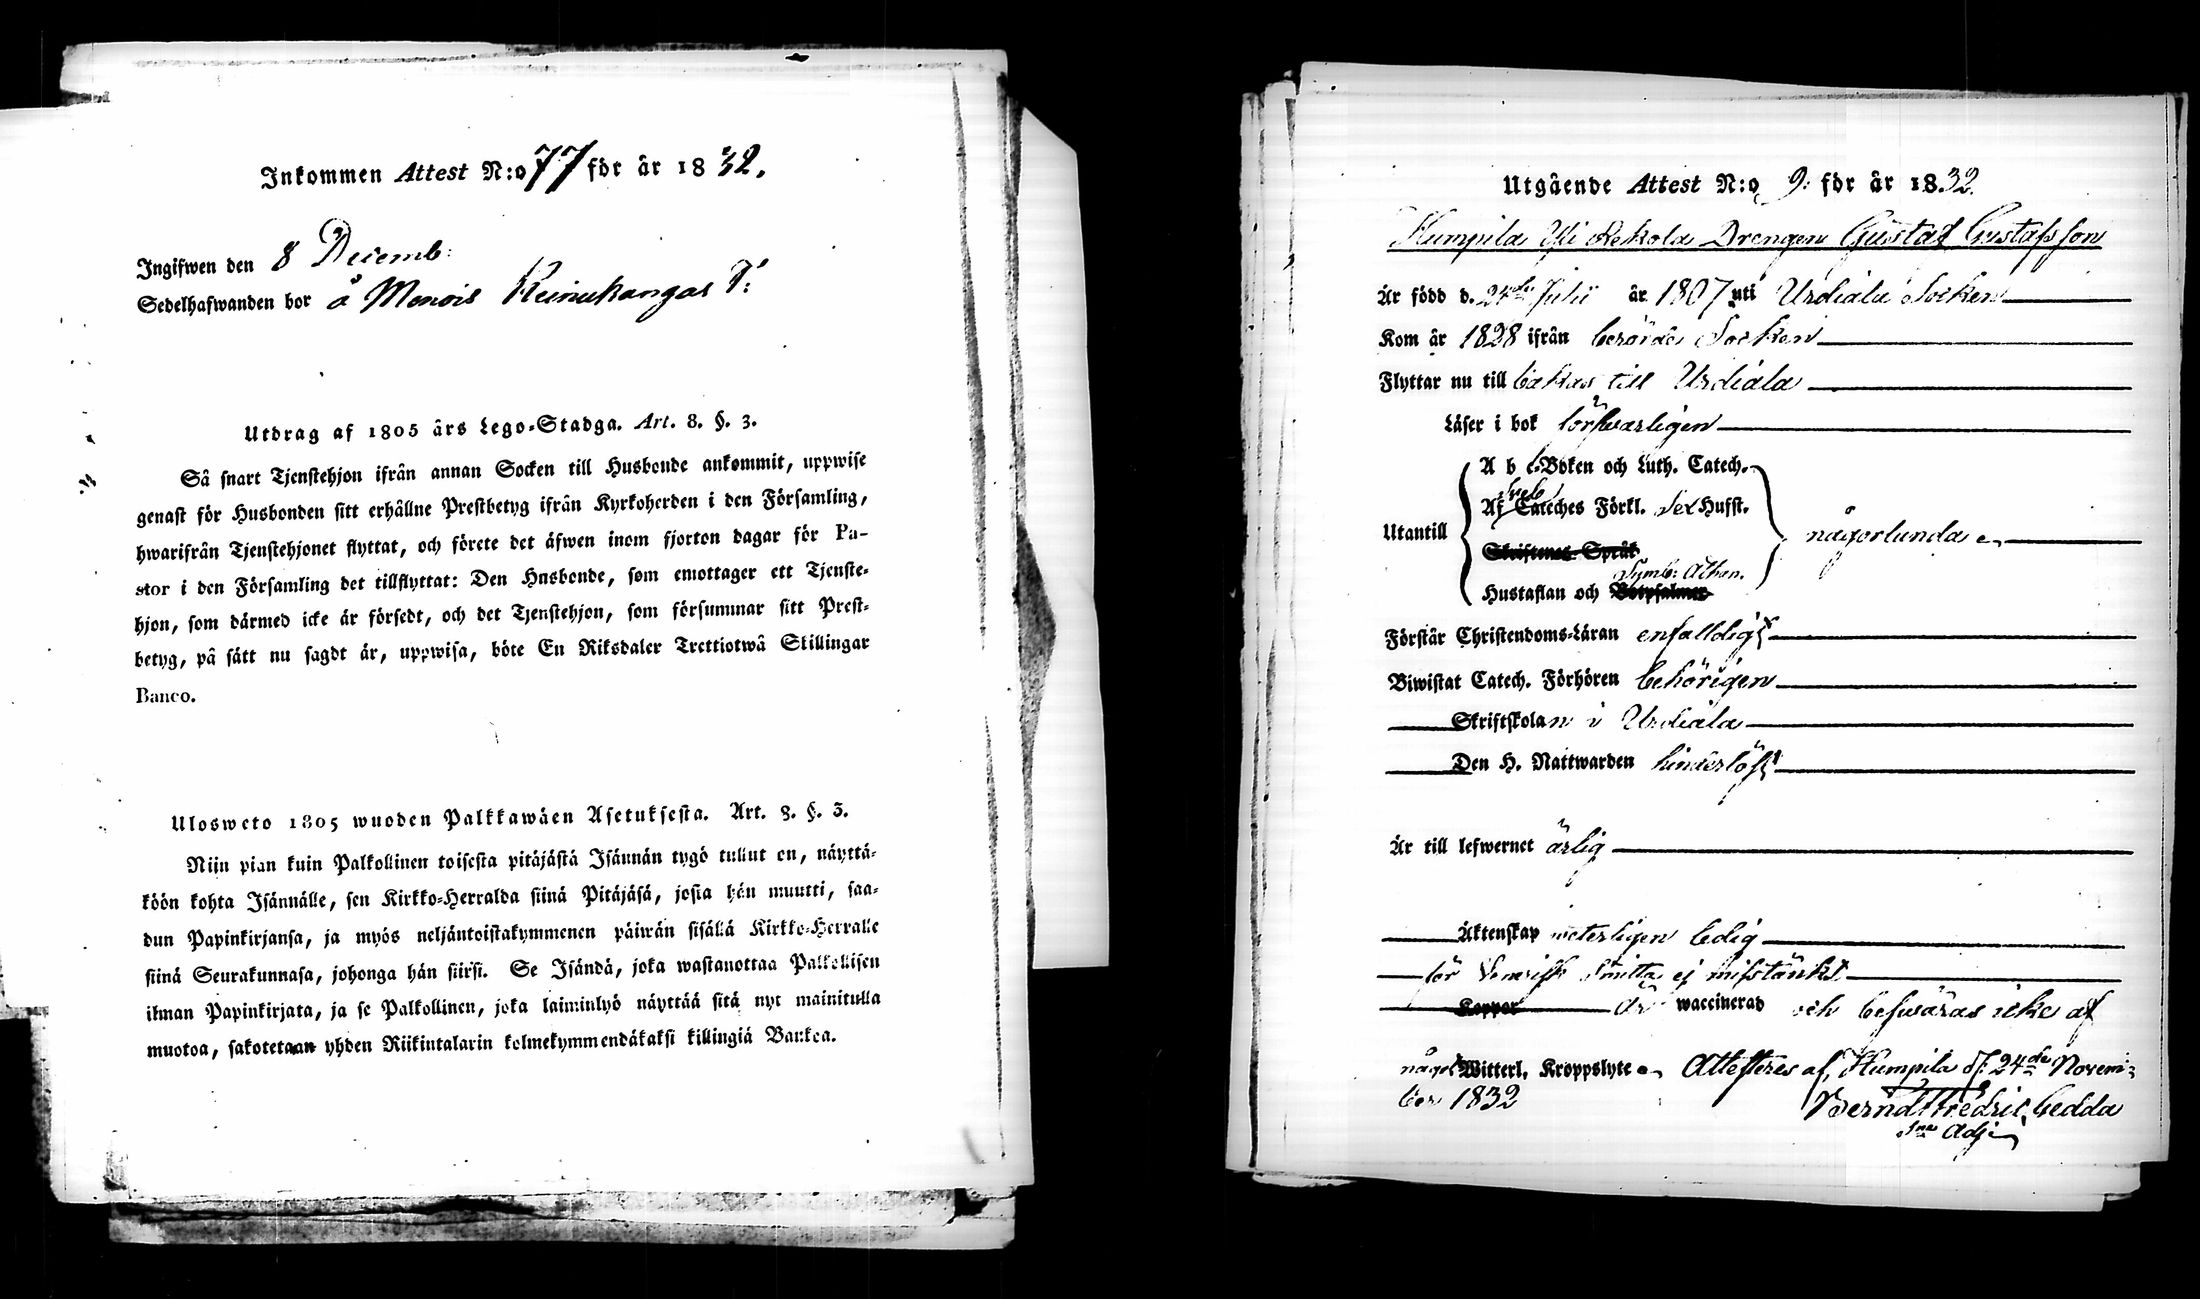 Inkommen Attest N:o 77 för år 1832.
Ingifwen den 8 Decemb:
Sedelhafwanden bor å Menois Keinukangas T:
Utdrag af 1805 års Lego-Stadga. Art. 8. §. 3.
Så snart Tjenstehjon ifrån annan Socken till Husbonde ankommit, uppwise
genast för Husbonden sitt erhållne Prestbetyg ifrån Kyrkoherden i den Församling,
hwarifrån Tjenstehjonet flyttat, och förete det äfwen inom fjorton dagar för Pa-
stor i den Församling det tillflyttat: Den Husbonde, som emottager ett Tjenste-
hjon, som därmed icke är försedt, och det Tjenstehjon, som försummar sitt Prest-
betyg, på sätt nu sagdt är, uppwisa, böte En Riksdaler Trettiotwå Skillingar
Banco.
Ulosweto 1805 wuoden Palkkawäen Asetuksesta. Art. 8. §. 3.
Niin pian kuin Palkollinen toisesta pitäjästä Isännän tygö tullut on, näyttä-
köön kohta Isännälle, sen Kirkko-Herralda siinä Pitäjäsä, josta hän muutti, saa-
dun Papinkirjansa, ja myös neljäntoistakymmenen päiwän sisällä Kirkko-Herralle
siinä Seurakunnasa, johonga hän siirsi. Se Isändä, joka wastanottaa Palkollisen
ilman Papinkirjata, ja se Palkollinen, joka laiminlyö näyttää sitä nyt mainitulla
muotoa, sakotetaan yhden Riikintalarin kolmekymmendäkaksi killingiä Bankoa.
Utgående Attest N:o 9: för år 1832.
Humpila Yli Rekola Drengen Gustaf Gustafsson
Är född d. 24de Julii år 1807 uti Urdiala Socken
Kom år 1828 ifrån berörde Socken
Flyttar nu till bakas till Urdiala
Läser i bok försvarligen
A b c-Boken och Luth. Catech.
Sveb
Utantill Af Cateches Förkl. Hufst. någorlunda
Skriftenes Språk
Symb: Athan.
Hustaflan och Botpsalmer
Förstår Christendoms-Läran enfaldigt
Biwistat Catech. Förhören behörigen
Skriftskolan i Urdiala
Den H. Nattwarden hinderlöst
Är till lefwernet ärlig
Äktenskap weterligen ledig
för Venerisk Smitta ej misstänkt
Koppor är waccinerad och beswäras icke af
något Witterl. Kroppslyte Attesteres af, Humpila d. 24de Novem-
ber 1832 Berndt Fredric Gedda
Adj: